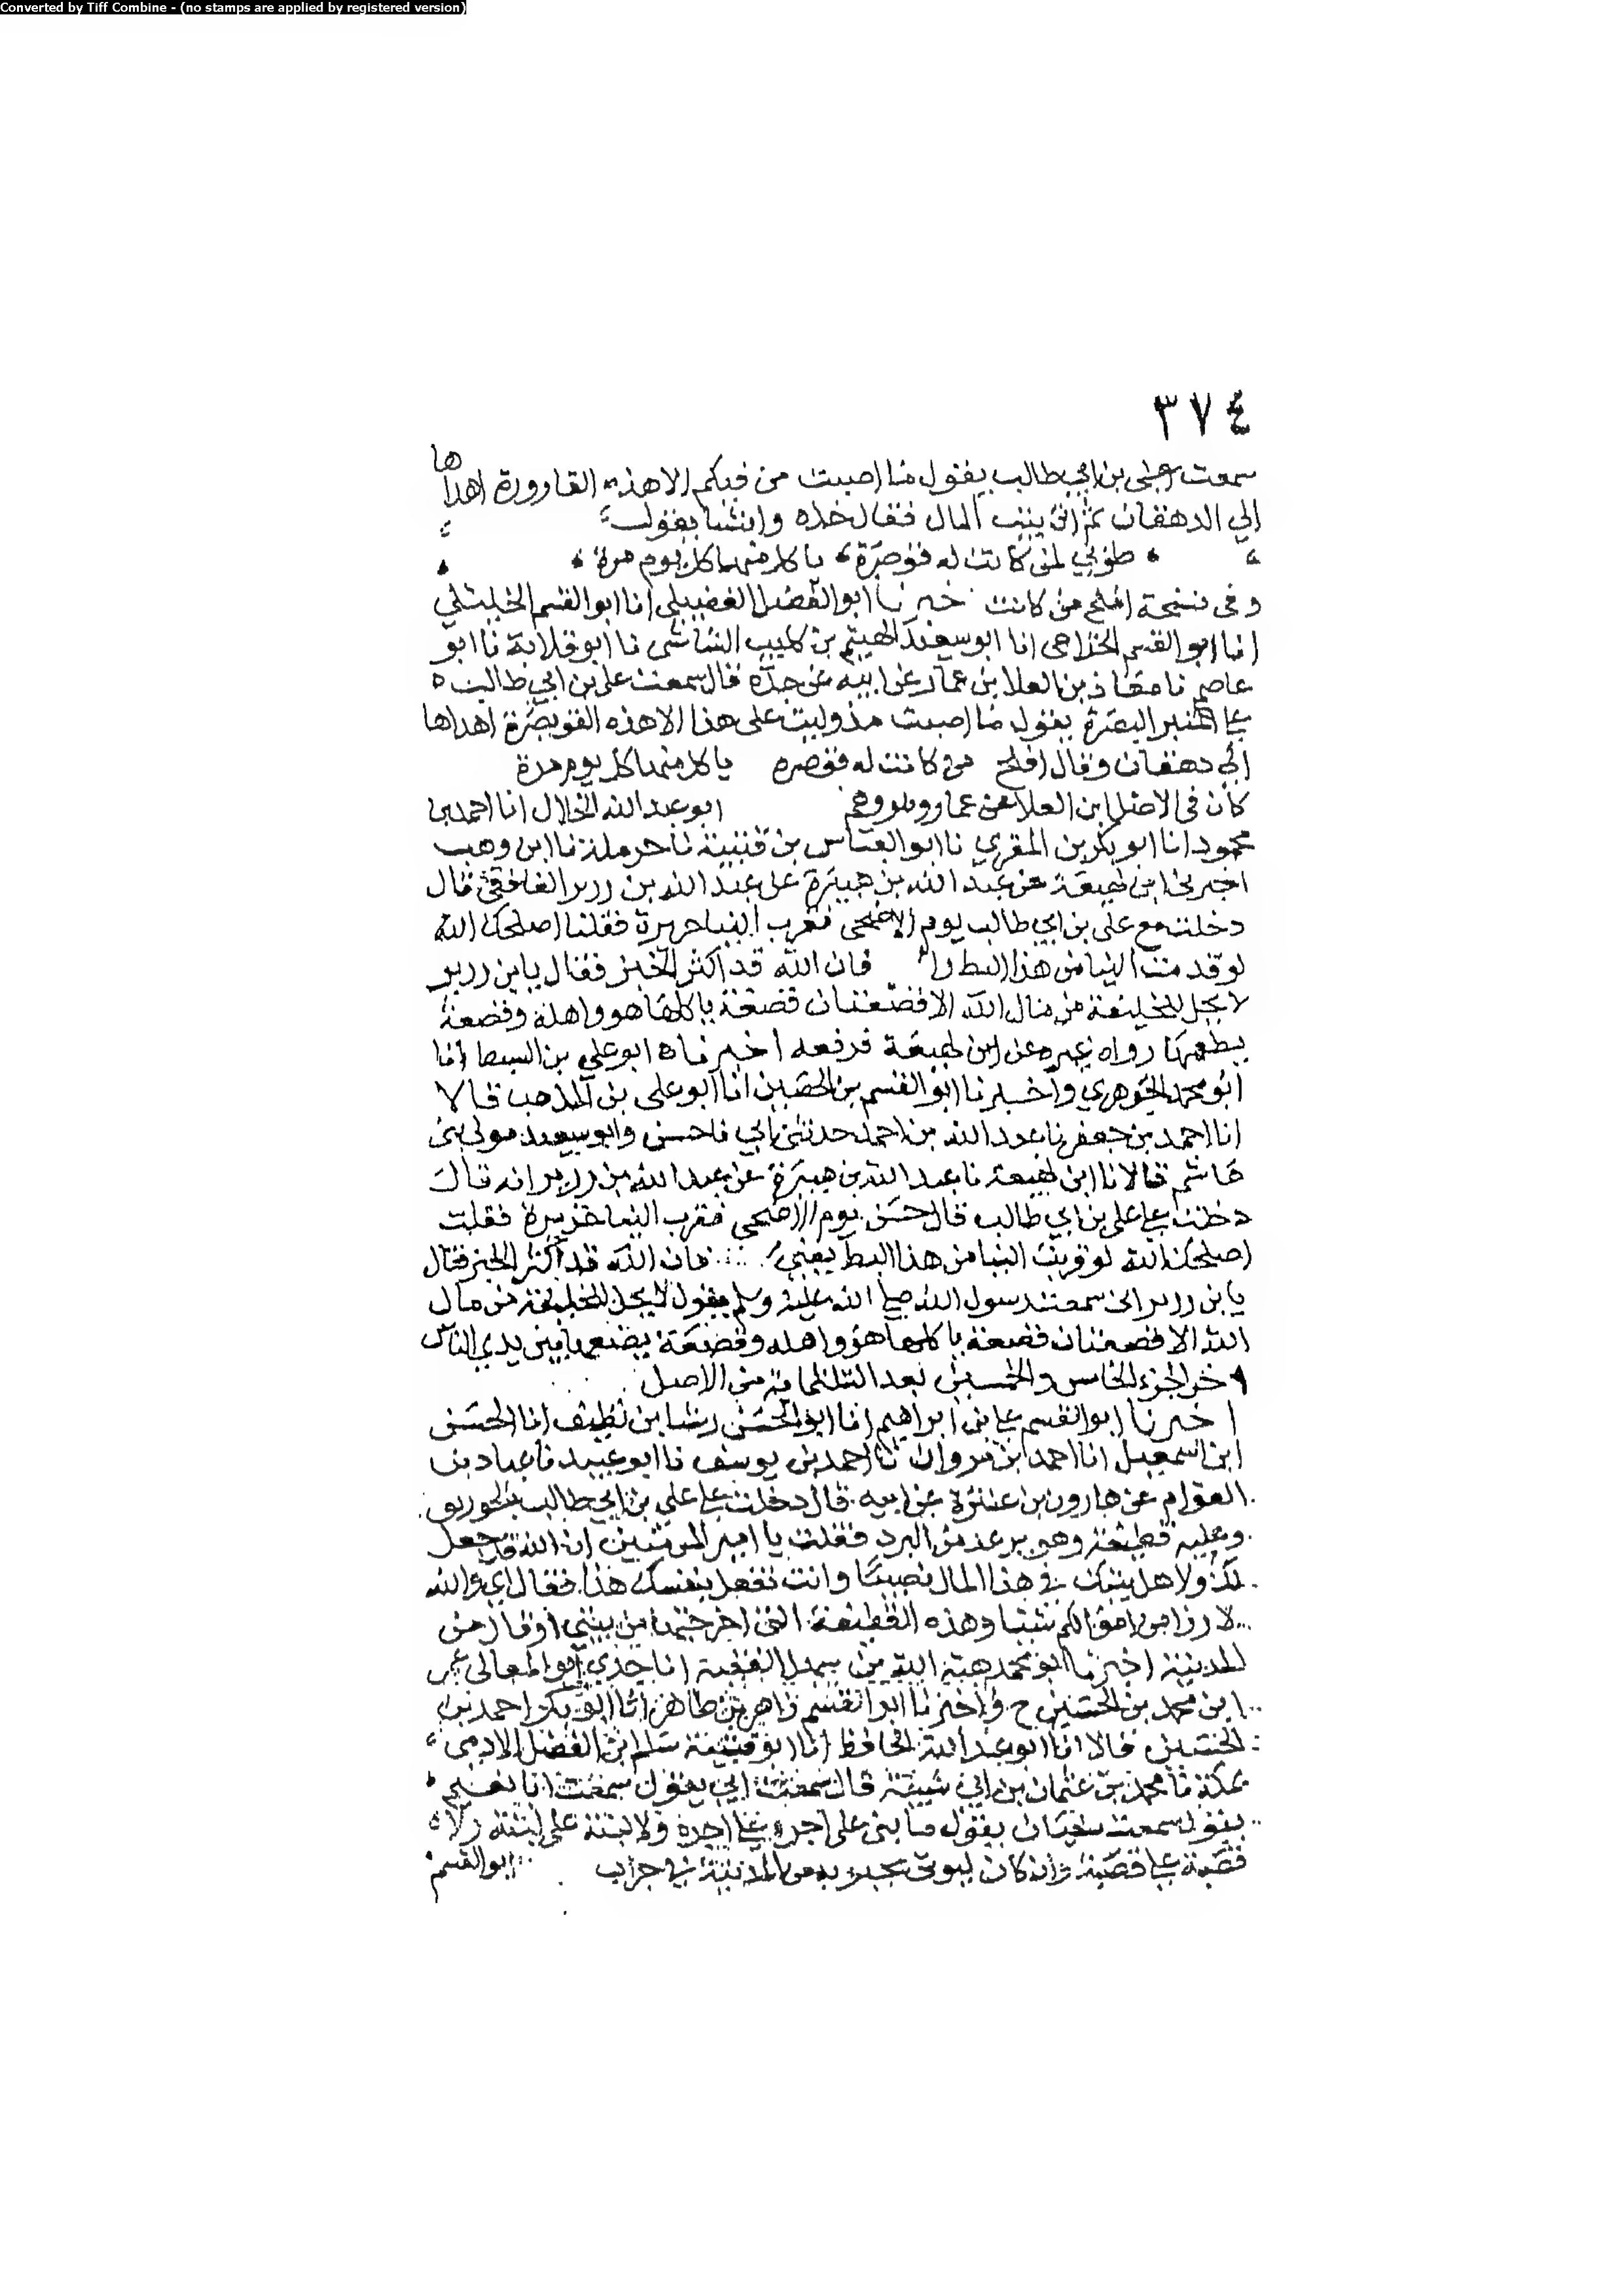 Converted by Tiff Combine - (no stamps are applied by registered version)
٣٧٤
سمعت علي بن ابي طالب يقول ما اصبت من فيكم الا هذه القارورة اهداها
الي الدهقان ثم اتى بيت المال فقال خذه وانشا يقول
طوبي لمن كانت له قوصرة ياكل منها كل يوم مرة
وفي نسخة افلح من كانت خبرنا ابو الفضل الفضيلي انا ابو القسم الخليلي
انا ابو القسم الخزاعي انا ابو سعيد الهيثم بن كليب الشاشي نا ابو قلابة نا ابو
عاصم نا معاذ بن العلا بن عمار عن ابيه عن جده قال سمعت علي بن ابي طالب
على المنبر البصرة يقول ما اصبت مذ وليت على هذا الا هذه القويصرة اهداها
الي دهقان وقال افلح من كانت له قوصره ياكل منها كل يوم مرة
كان في الاصل ابن العلا عن عمار وهم ابو عبد الله الخلال انا احمد بن
محمود انا ابو بكر بن المقري نا ابو العباس بن قتيبة نا حرملة نا ابن وهب
اخبرني ابن لهيعة عن عبد الله بن هبيرة عن عبد الله بن زرير الغافقي قال
دخلت مع علي بن ابي طالب يوم الاضحى فقرب الينا حريرة فقلنا اصلحك الله
لو قدمت الينا من هذا البط فان الله قد اكثر الخير فقال يا بن زرير
لا يحل للخليفة من مال الله الا قصعتان قصعة ياكلها هو واهله وقصعة
يطعمها رواه غيره عن ابن لهيعة فرفعه اخبرناه ابو علي بن السبط انا
ابو محمد الجوهري واخبرنا ابو القسم بن الحصين انا ابو علي بن المذهب قالا
انا احمد بن جعفر نا عبد الله بن احمد حدثني ابي نا حسن وابو سعيد مولى بني
هاشم قالا نا ابن لهيعة نا عبد الله بن هبيرة عن عبد الله بن زرير انه قال
دخلت على علي بن ابي طالب قال حسن يوم الاضحى فقرب الينا خزيرة فقلت
اصلحك الله لو قربت الينا من هذا البط يعني فان الله قد اكثر الخير فقال
يا بن زرير اني سمعت رسول الله صلى الله عليه وسلم يقول لا يحل للخليفة من مال
الله الا قصعتان قصعة ياكلها هو واهله وقصعة يضعها بين يدي الناس
اخر الجزء الخامس والخمسين بعد الثلثماية من الاصل
اخبرنا ابو القسم علي بن ابراهيم انا ابو الحسن رشا بن نظيف انا الحسن
ابن اسمعيل انا احمد بن مروان نا احمد بن يوسف نا ابو عبيد نا عباد بن
العوام عن هارون بن عنترة عن ابيه قال دخلت على علي بن ابي طالب بالخورنق
وعليه قطيفة وهو يرعد من البرد فقلت يا امير المومنين ان الله قد جعل
لك ولاهل بيتك في هذا المال نصيبا وانت تفعل بنفسك هذا فقال اي والله
لا ارزا من اموالكم شيا وهذه القطيفة التي اخرجتها من بيتي او قال من
المدينة اخبرنا ابو محمد هبة الله بن سهل الفقيه انا جدي ابو المعالي عمر
ابن محمد بن الحسين ح واخبرنا ابو القسم زاهر بن طاهر انا ابو بكر احمد بن
الحسين قالا انا ابو عبد الله الحافظ انا ابو قتيبة سلم بن الفضل الادمي
بمكة نا محمد بن عثمان بن ابي شيبة قال سمعت ابي يقول سمعت ابا نعيم
يقول سمعت سفيان يقول ما بنى علي اجرة على اجرة ولا لبنة على لبنة ولا
قصبة على قصبة وان كان ليوتى بحبوبه من المدينة في جراب ابو القسم